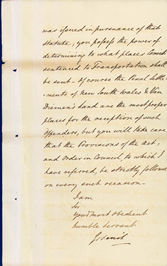 was issued in pursuance of this
Statute, you possess the power of
determining to what place Convicts
sentenced to Transportation shall
be sent. Of course the Penal Settle-
-ments of New South Wales & Van
Diemen's Land are the most proper
places for the reception of such
Offenders, but you will take care
that the Provisions of the Act,
and Order in Council, to which I
have referred, be strictly followed
on every such occasion.
I am
Sir
Your most obedient
humble Servant